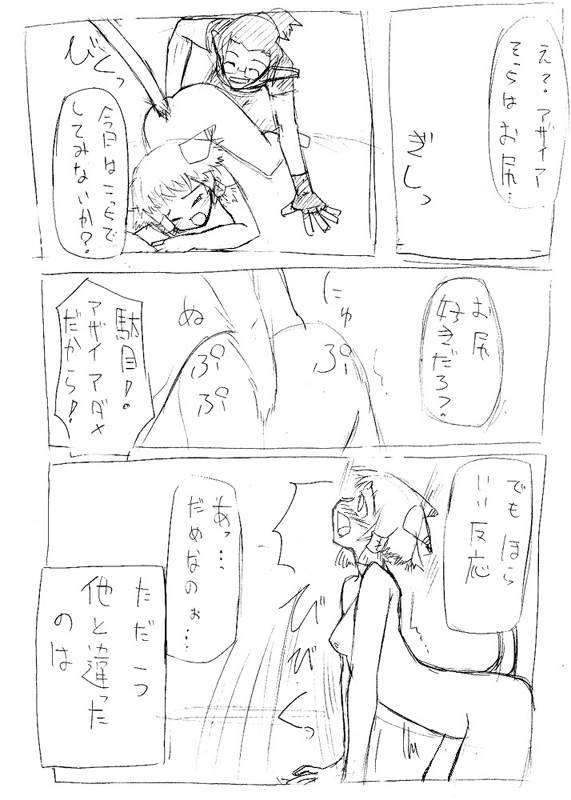 え？アザイア
そこはお尻…
ぎしっ
びくっ
今日はこっちで
してみないか？
お尻
好きだろ？
にゅ
ぷ
ぬ
ぷぷ
駄目！！
アザイアダメ
だから！
でもほら
いい反応
びびくっ
あっ…
だめなのぉ…
ただ1つ
他と違った
のは